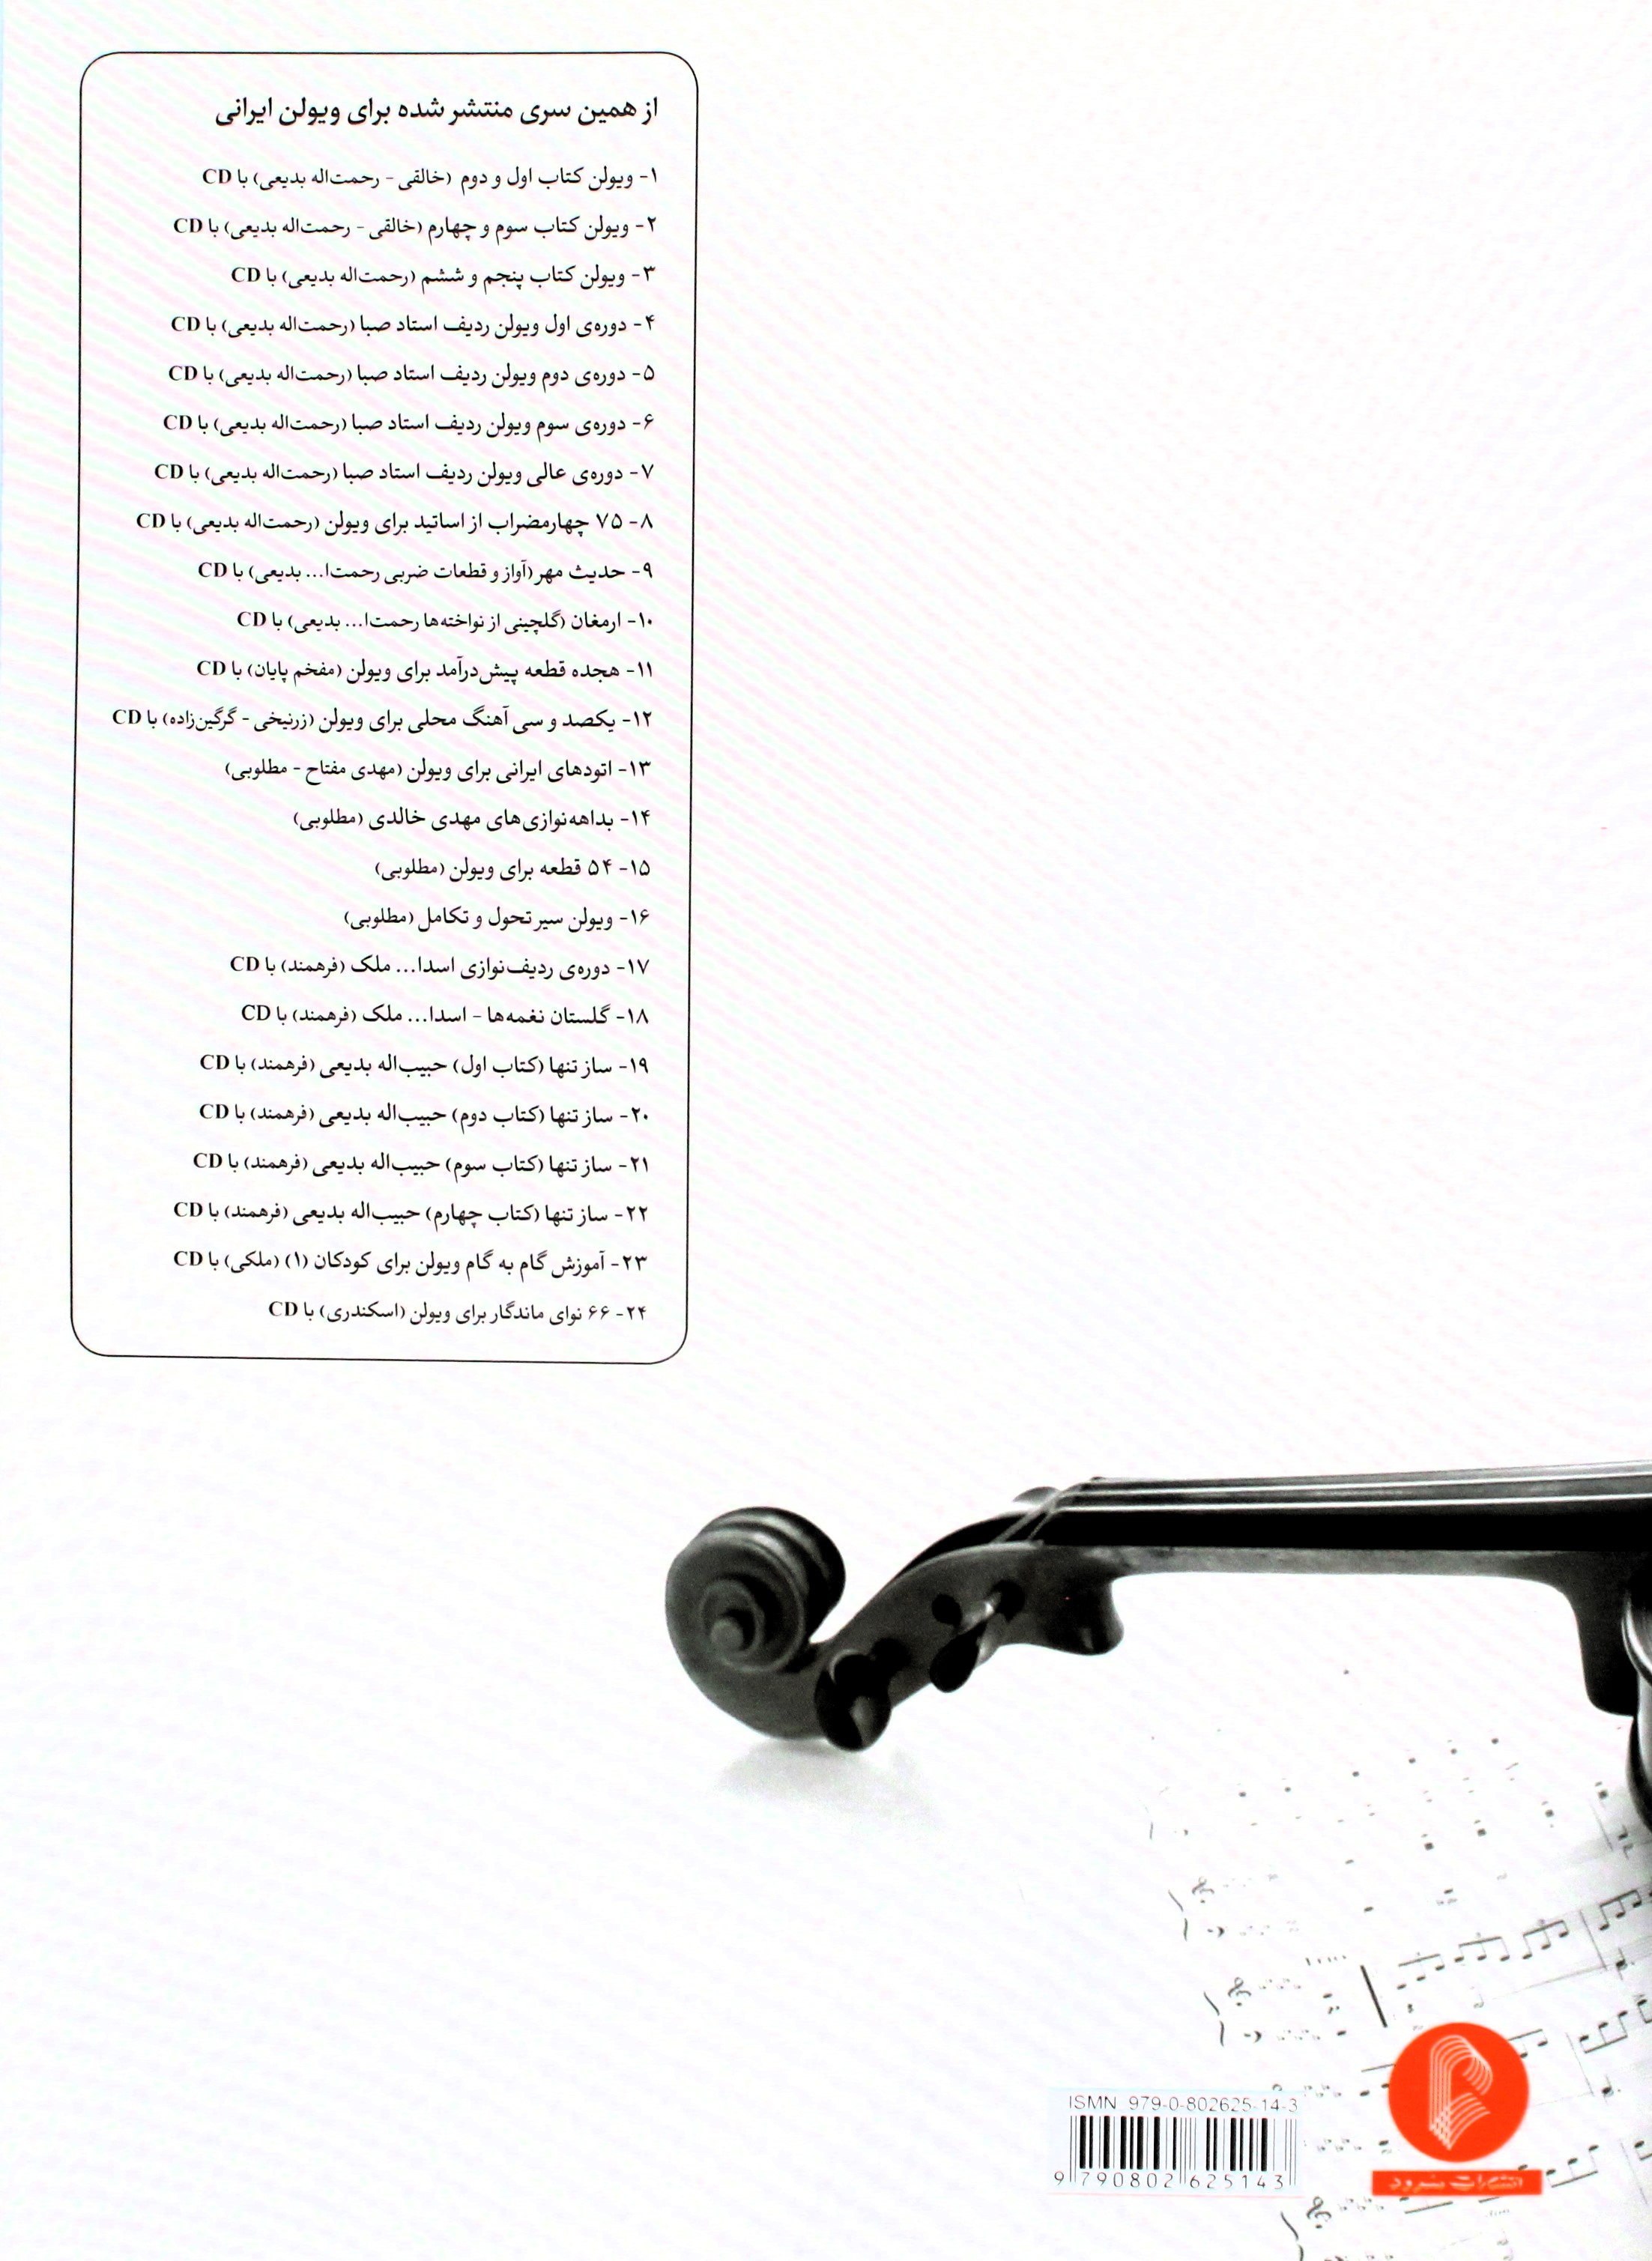 از همین سری منتشر شده برای ویولن ایرانی
۱- ویولن کتاب اول و دوم (خالقی - رحمت‌اله بدیعی) با CD
۲- ویولن کتاب سوم و چهارم (خالقی - رحمت‌اله بدیعی) با CD
۳- ویولن کتاب پنجم و ششم (رحمت‌اله بدیعی) با CD
۴- دوره‌ی اول ویولن ردیف استاد صبا (رحمت‌اله بدیعی) با CD
۵- دوره‌ی دوم ویولن ردیف استاد صبا (رحمت‌اله بدیعی) با CD
۶- دوره‌ی سوم ویولن ردیف استاد صبا (رحمت‌اله بدیعی) با CD
۷- دوره‌ی عالی ویولن ردیف استاد صبا (رحمت‌اله بدیعی) با CD
۸- ۷۵ چهارمضراب از اساتید برای ویولن (رحمت‌اله بدیعی) با CD
۹- حدیث مهر (آواز و قطعات ضربی رحمت‌ا... بدیعی) با CD
۱۰- ارمغان (گلچینی از نواخته‌ها رحمت‌ا... بدیعی) با CD
۱۱- هجده قطعه پیش‌درآمد برای ویولن (مفخم پایان) با CD
۱۲- یکصد و سی آهنگ محلی برای ویولن (زرنیخی - گرگین‌زاده) با CD
۱۳- اتودهای ایرانی برای ویولن (مهدی مفتاح - مطلوبی)
۱۴- بداهه‌نوازی‌های مهدی خالدی (مطلوبی)
۱۵- ۵۴ قطعه برای ویولن (مطلوبی)
۱۶- ویولن سیر تحول و تکامل (مطلوبی)
۱۷- دوره‌ی ردیف‌نوازی اسدا... ملک (فرهمند) با CD
۱۸- گلستان نغمه‌ها - اسدا... ملک (فرهمند) با CD
۱۹- ساز تنها (کتاب اول) حبیب‌اله بدیعی (فرهمند) با CD
۲۰- ساز تنها (کتاب دوم) حبیب‌اله بدیعی (فرهمند) با CD
۲۱- ساز تنها (کتاب سوم) حبیب‌اله بدیعی (فرهمند) با CD
۲۲- ساز تنها (کتاب چهارم) حبیب‌اله بدیعی (فرهمند) با CD
۲۳- آموزش گام به گام ویولن برای کودکان (۱) (ملکی) با CD
۲۴- ۶۶ نوای ماندگار برای ویولن (اسکندری) با CD
ISMN 979-0-802625-14-3
9 790802 625143
انتشارات سرود